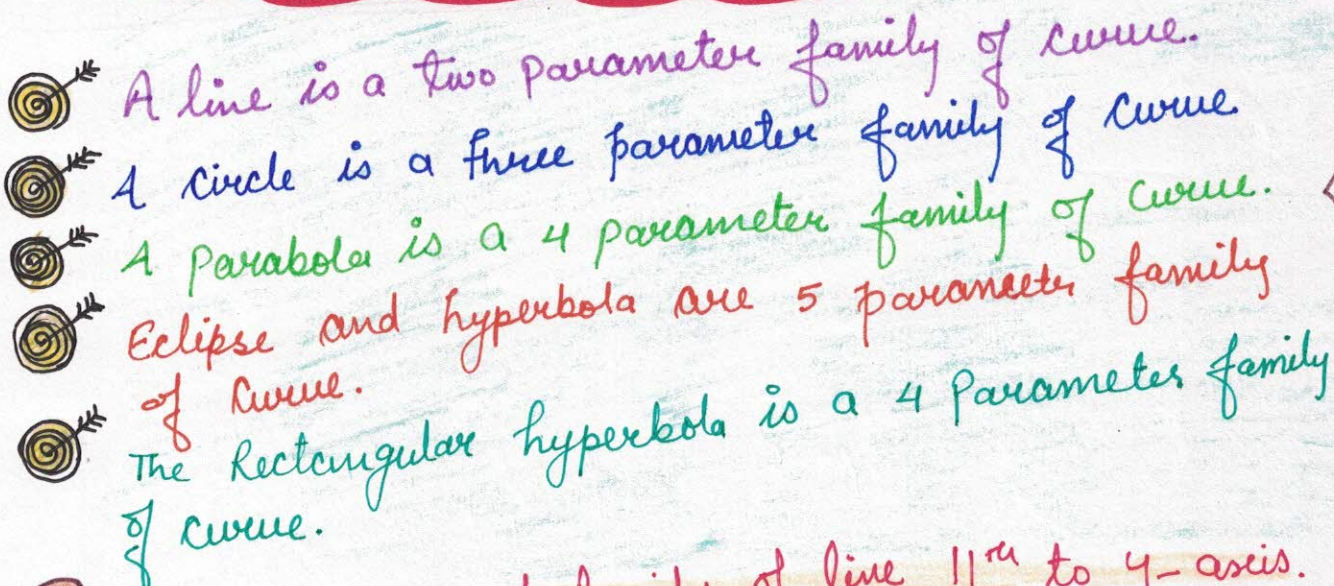 A line is a two parameter family of curve.
A circle is a three parameter family of curve
A parabola is a 4 parameter family of curve.
Eclipse and hyperbola are 5 parameter family
of curve.
The Rectangular hyperbola is a 4 Parameter family
of curve.
family of line 11ʳᵉˡ to y-axis.